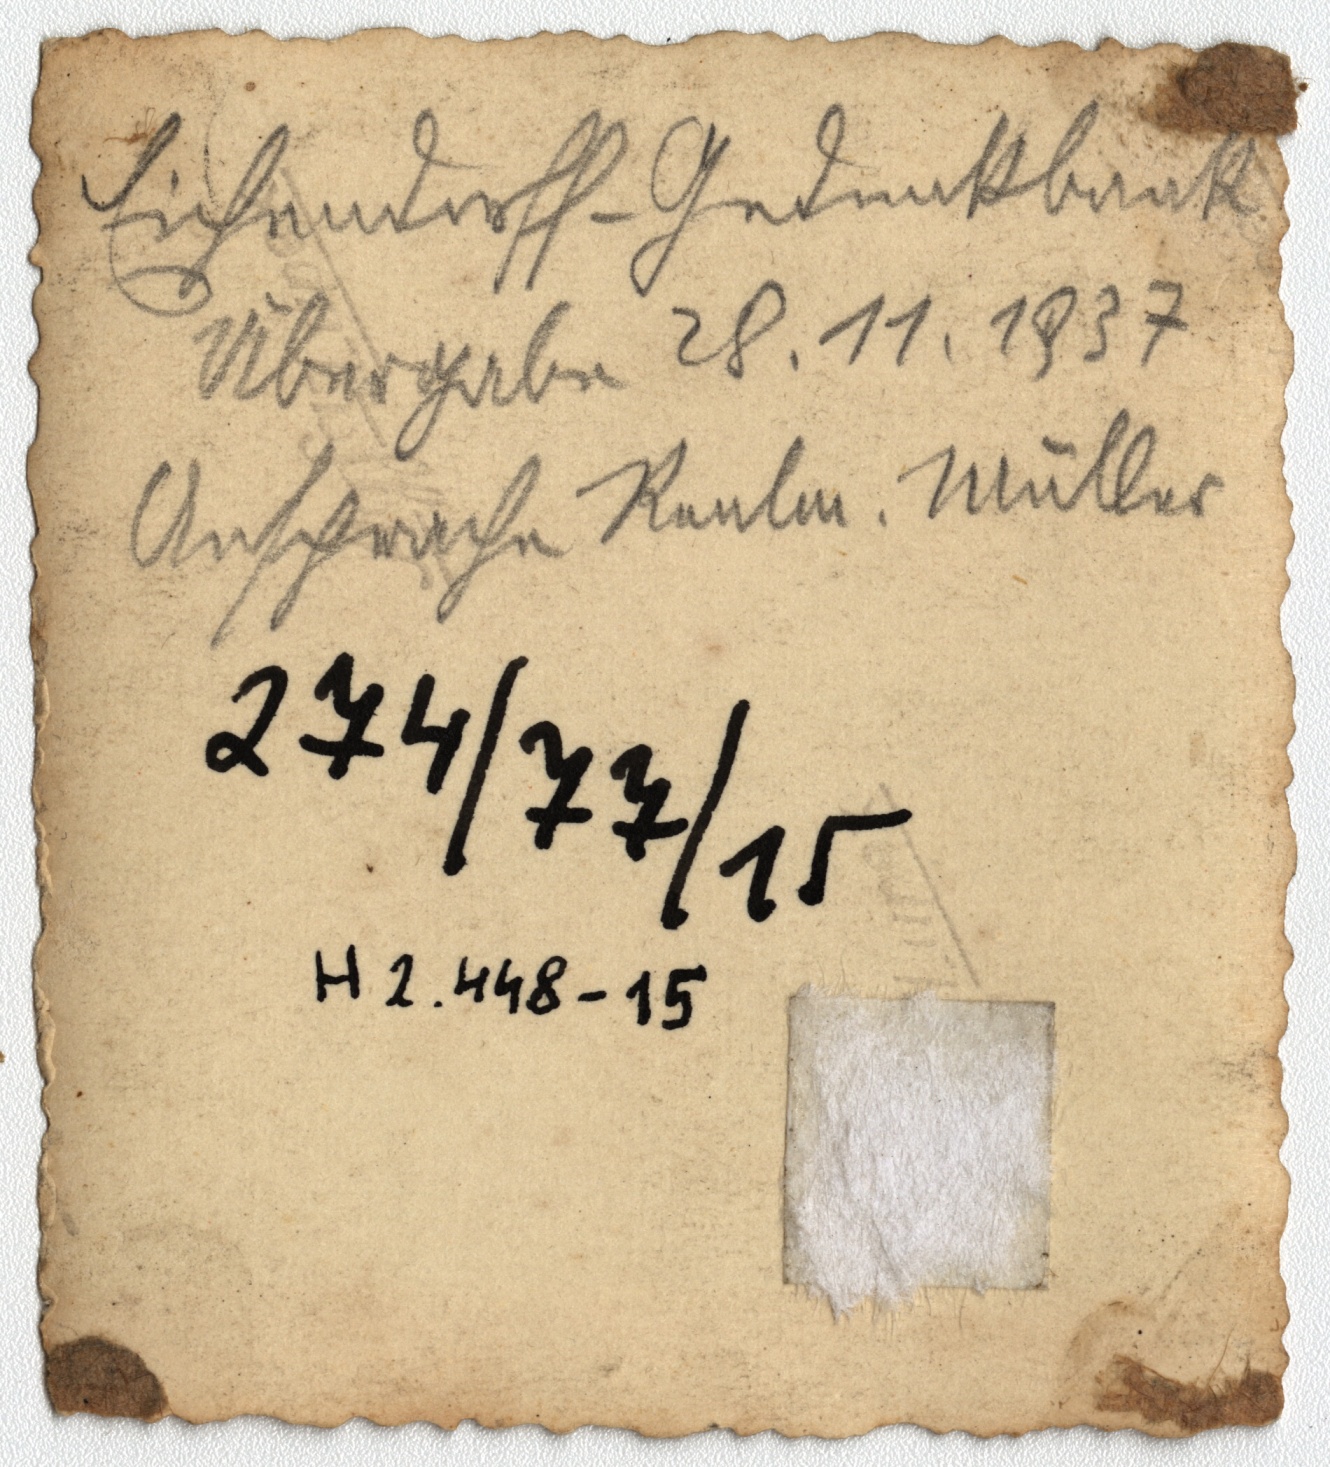 Eichendorff-Gedenkbank
Übergabe 28.11.1937
Ansprache Müller
274/77/15
H 2.448-15